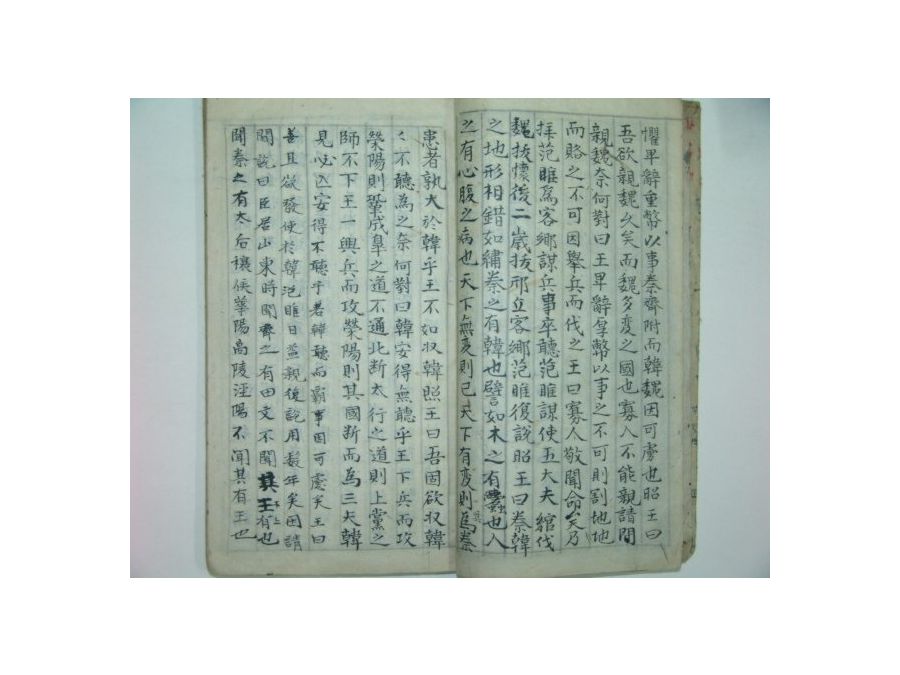 懼卑辭重幣以事秦齊附而韓魏因可虜也昭王曰
吾欲親魏久矣而魏多變之國也寡人不能親請問
親魏奈何對曰王卑辭厚幣以事之不可則割地地
而賂之不可因舉兵而伐之王曰寡人敬聞命矣乃
拜范睢為客鄉謀兵事卒聽范睢謀使五大夫綰伐
魏拔懷後二歲拔邢丘客鄉范睢復說昭王曰秦韓
之地形相錯如繡秦之有韓也譬如木之有蠹也人
之有心腹之病也天下無変則已天下有変則爲秦
其
患者孰大於韓乎王不如収韓照王曰吾固欲収韓
〻不聽為之奈何對曰韓安得無聽乎王下兵而攻
滎陽則鞏成皐之道不通北断太行之道則上黨之
師不下王一興兵而攻滎陽則其國断而為三夫韓
見必亾安得不聽乎若韓聽而霸事因可慮矣王曰
善且欲發使於韓范睢日益親復說用數年矣因請
間說曰臣居山東時聞齊之有田文不聞其王有也
聞秦之有太后穰侯華陽高陵涇陽不聞其有王也